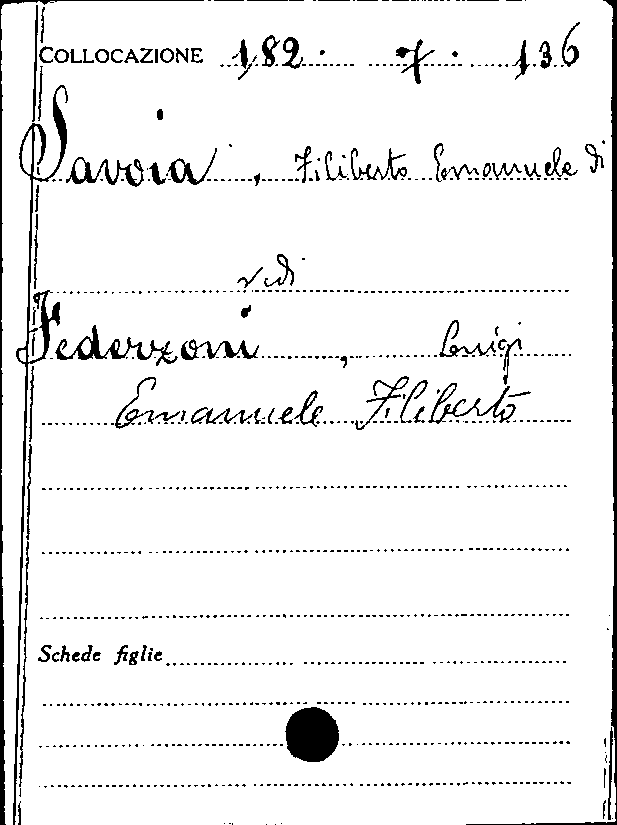 COLLOCAZIONE 182. 7. 136
Savoia, Filiberto Emanuele di
vedi
Federzoni, Luigi
Emanuele Filiberto
Schede figlie